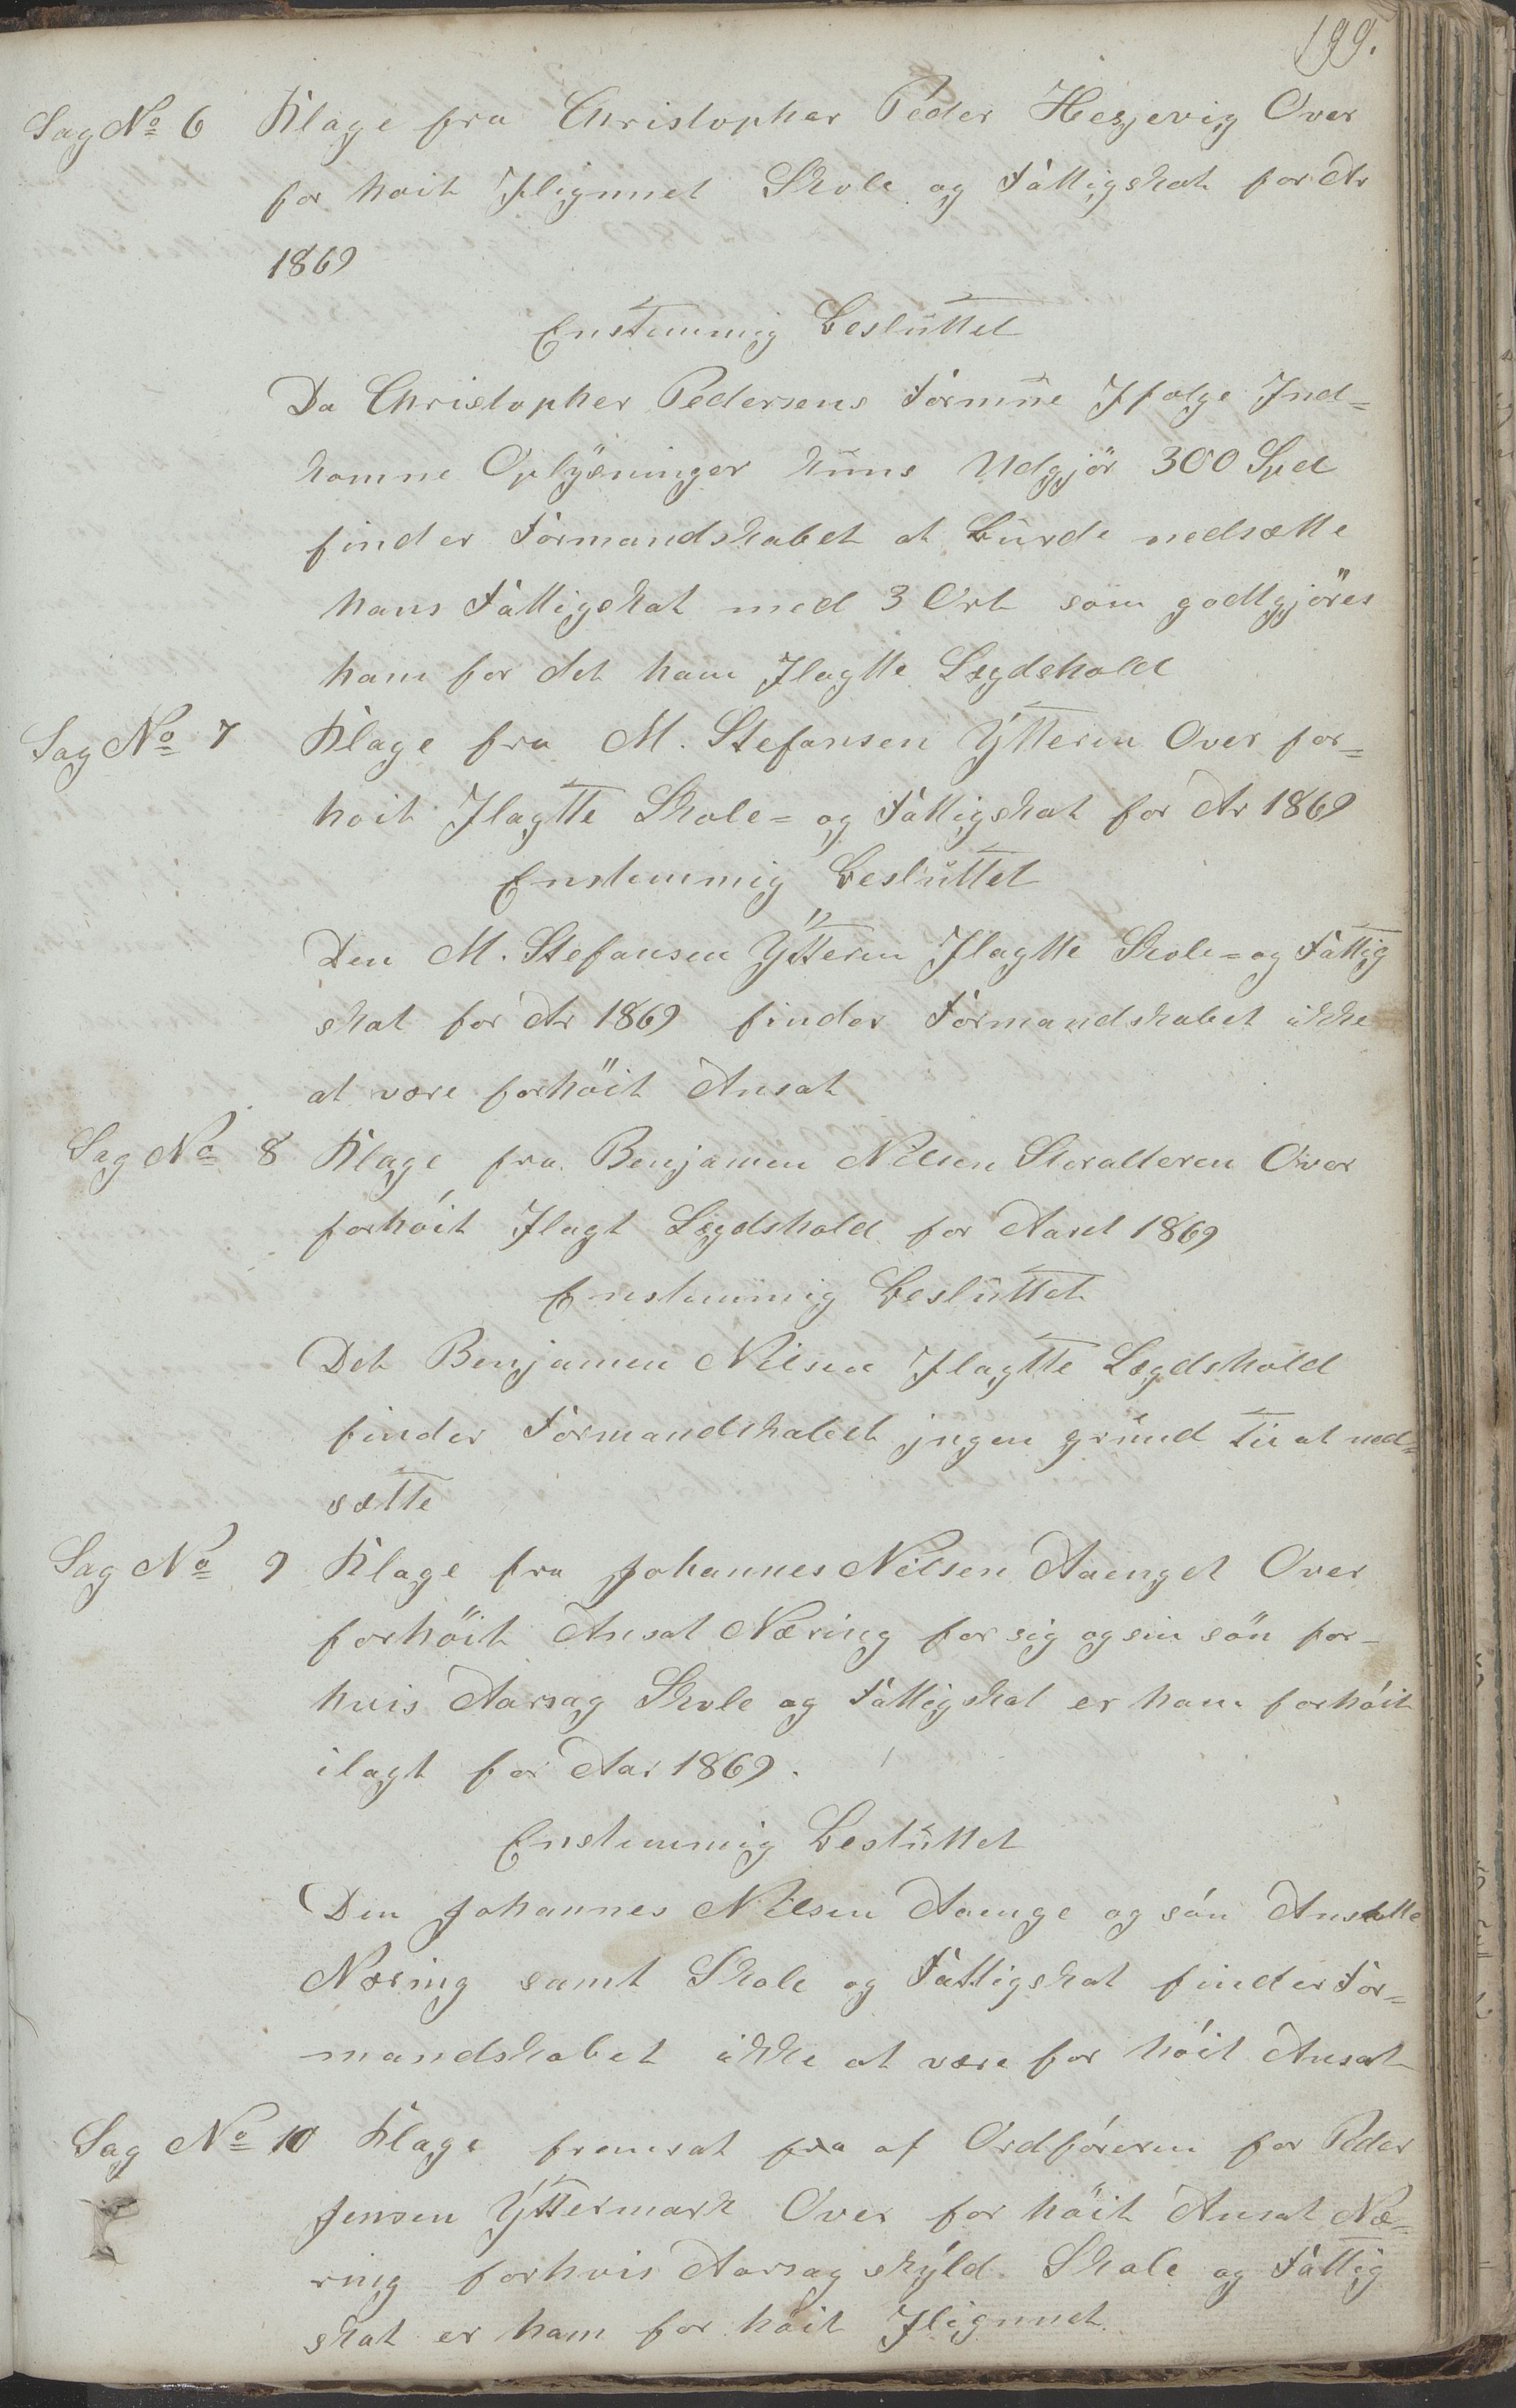 199.
Sag No 6 Klage fra Christopher Peder Hesjevig Over
for høit Ilignnet Skole og Fattigskat for Ar
1869
Enstemmig besluttet
Da Christopher Pedersens Formue Ifølge Ind=
komne Oplysninger kuns Udgjör 300 Spd
finder Formandskabet at burde nedsætte
hans Fattigskat med 3 Ort som godtgjöres
ham for det ham Ilagtte Lægdshold
Sag No 7 Klage fra M. Stefansen Ytteren Over for=
høit Ilagtte Skole= og Fattigskat for Ar 1869
Enstemmig besluttet
Den M. Stefansen Ytteren Ilagtte Skole= og Fattig
skat for Ar 1869 finder Formandskabet ikke
at være forhöit Ansat
Sag No 8 Klage fra Benjamen Nilsen Storalteren Over
forhóit Ilagt Lægdshold for Aaret 1869
Enstemmig besluttet
Det Benjamen Nilsen Ilagtte Lægdshold
finder Formandskabet jngen grund til at ned=
sætte
Sag No 9 Klage fra Johannes Nilsen Aaenget Over
forhöit Ansat Næring for sig og sin sön for-
hvis Aarsag Skole og Fattigskat er ham forhóit
ilagt for Aar 1869.
Enstemmig Besluttet
Den Johannes Nilsen Aaenge og són Ansatte
Næring samt Skole og Fattigskat finder For=
mandskabet ikke at være for hóit Ansat
Sag No 10 Klage fremsat fra af Ordfóreren for Peder
Jensen Yttermark Over for höit Ansat Næ=
ring forhvis Aarsag skyld. Skole og Fattig
skat er ham for höit Ilignnet